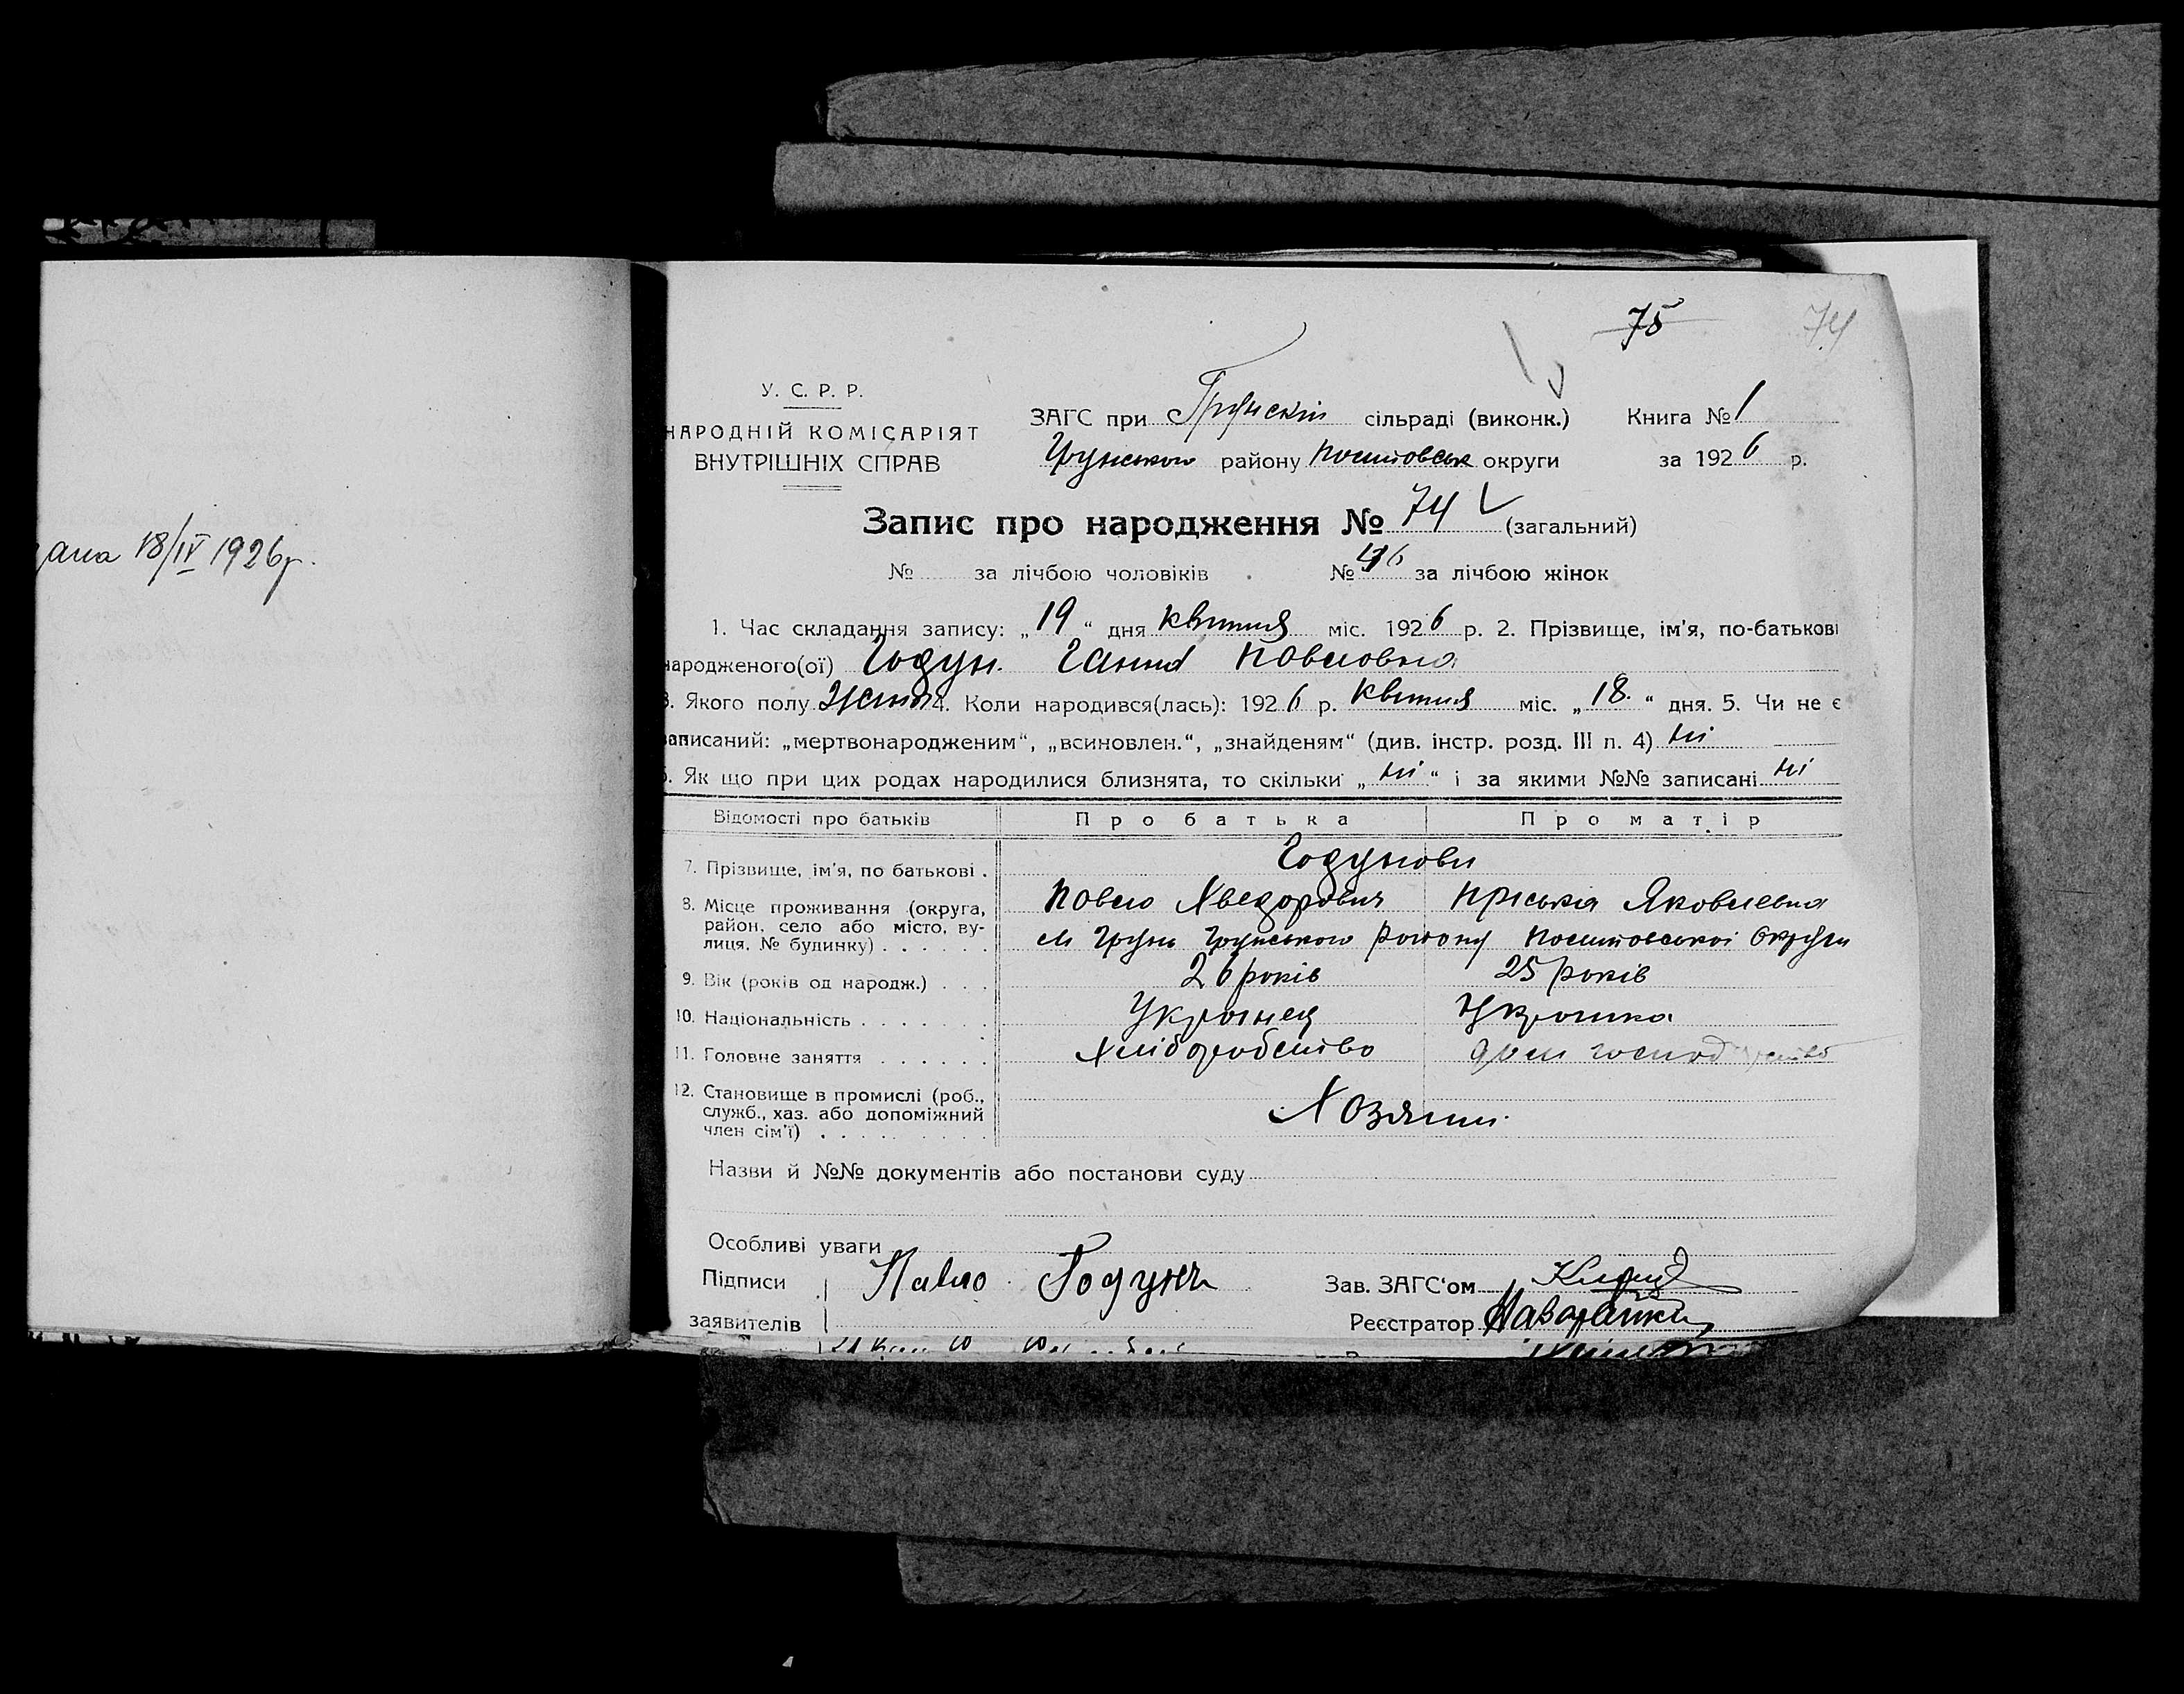 дана 18/IV 1926р.
75 74
У. С. Р. Р.
НАРОДНІЙ КОМІСАРІЯТ
ВНУТРІШНІХ СПРАВ
ЗАГС при Грунскій сільраді (виконк.) Книга № 1
Грунського району округи за 1926 р.
Запис про народження № 74 (загальний)
№ за лічбою чоловіків № 46 за лічбою жінок
1. Час складання запису: „19“ дня квітня міс. 1926 р. 2. Прізвище, ім'я, по-батькові
народженого(ої) Годун. Ганна Павловна
3. Якого полу жіноч 4. Коли народився(лась): 1926 р. квітня міс. „18.“ дня. 5. Чи не є
записаний: „мертвонародженим“, „всиновлен.“, „знайденям“ (див. інстр. розд. III п. 4) ні
6. Як що при цих родах народилися близнята, то скільки „ні“ і за якими №№ записані ні
Відомості про батьків Про батька Про матір
7. Прізвище, ім'я, по батькові . Годунови
Павло Хведорович Пріська Яковлевна
8. Місце проживання (округа, район, село або місто, вулиця, № будинку) . . . . . . м Грунь Грунського району округи
9. Вік (років од народж.) . . . 26 років 25 років
10. Національність . . . . . . . Українец Українка
11. Головне заняття . . . . . . Хліборобство дом господарство
12. Становище в промислі (роб.,
служб., хаз. або допоміжний
член сім'ї) . . . . . . . . . Хозяини
Назви й №№ документів або постанови суду
Особливі уваги
Підписи Павло Годунъ Зав. ЗАГС'ом
заявителів Реєстратор